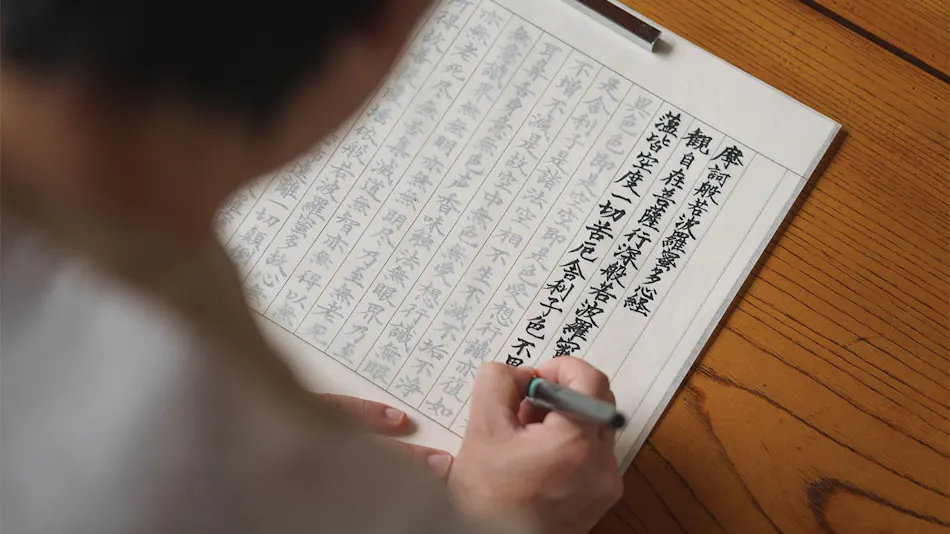 摩訶般若波羅蜜多心経
観自在菩薩行深般若波羅蜜
蘊皆空度一切苦厄舎利子色不異
異色色即是空空即是色受想行識亦復如
是舎利子是諸法空相不生不滅不垢不浄
不増不減是故空中無色無受想行識無眼
耳鼻舌身意無色声香味触法無眼界乃至
無意識界無無明亦無無明尽乃至無老死
亦無老死尽無苦集滅道無智亦無得以無
得故依般若波羅蜜多故心無
遠離一切顛倒